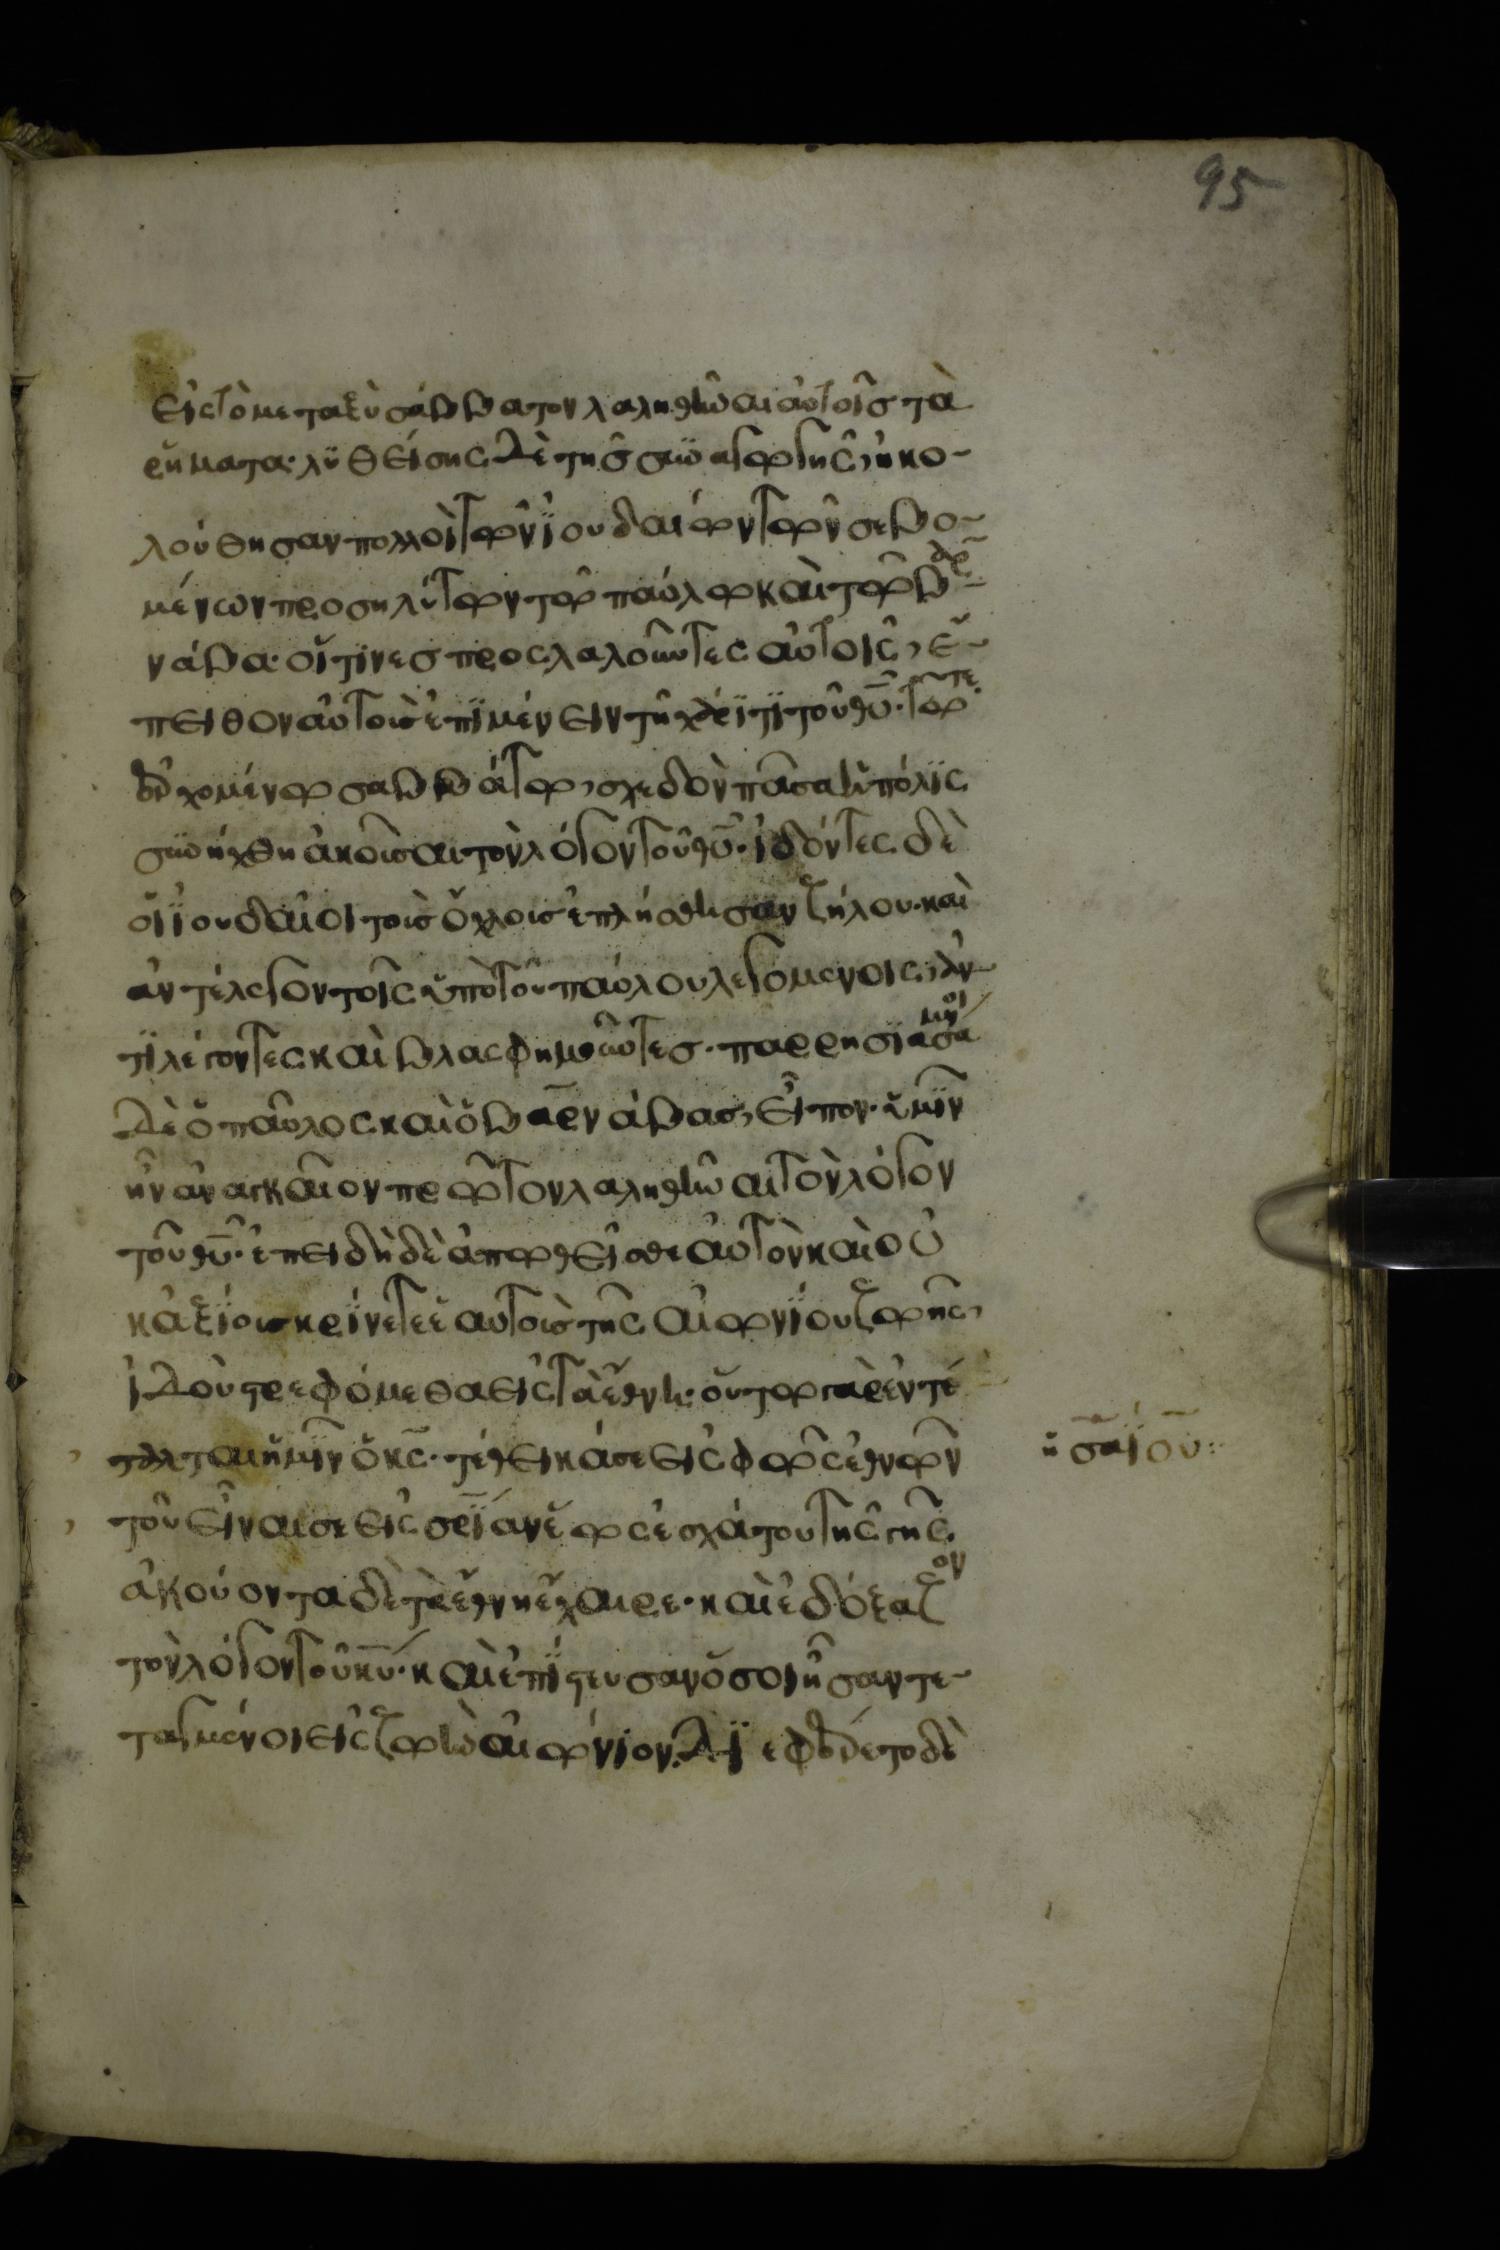 95
εἰς τὸ μεταξὺ σάββατον λαληθῆναι αὐτοῖς τὰ
ῥήματα· λυθείσης δὲ τῆς συναγωγῆς, ἠκο-
λούθησαν πολλοὶ τῶν ϊουδαίων τῶν σεβο-
μένων προσηλύτων τῶ παύλω καὶ τῶ βαρ-
νάβα· οἵτινες προσλαλοῦντες αὐτοῖς, ἔ-
πειθον αὐτοὺς ἐπιμένειν τῆ χάριτι τοῦ θυ· τῶ τε
ἐρχομένω σαββάτω, σχεδὸν πᾶσα ἡ πόλις
συνήχθη ἀκοῦσαι τὸν λόγον τοῦ θυ· ἰδόντες δὲ
οἱ ϊουδαῖοι τοὺς ὄχλους ἐπλήσθησαν ζήλου· καὶ
ἀντέλεγον τοῖς ὑπὸ τοῦ παύλου λεγομένοις, ἀν-
τιλέγοντες καὶ βλασφημοῦντες· παρρησιασάμενοι
δὲ ὁ παῦλος καὶ ὁ βαρνάβας, εἶπον· ὑμῖν
ἦν ἀναγκαῖον πρῶτον λαληθῆναι τὸν λόγον
τοῦ θυ· ἐπειδὴ δὲ ἀπωθεῖσθε αὐτὸν καὶ οὐ
κ ἀξίους κρίνετε ἑαυτοὺς τῆς αἰωνίου ζωῆς,
ἰδοὺ στρεφόμεθα εἰς τὰ ἔθνη· οὕτω γὰρ ἐντέ
ταλται ἡμῖν ὁ κς· τέθεικά σε εἰς φῶς ἐθνῶν
ἡσαΐου
τοῦ εἶναί σε εἰς σρίαν ἕως ἐσχάτου τῆς γῆς
ἀκούοντα δὲ τὰ ἔθνη ἔχαιρε· καὶ ἐδόξαζον
τὸν λόγον τοῦ κυ· καὶ ἐπίστευσαν ὅσοι ἦσαν τε-
ταγμένοι εἰς ζωὴν αἰώνιον. διεφέρετο δὲ